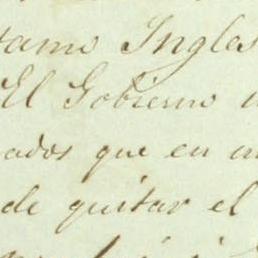 tamo Ingles
El Gobierno
ados que en
de quitar el